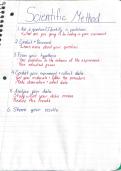 Scientific Method
1. Ask a question/Identify a problem
What are you going to be testing in your experiment
2. Conduct Research
Learn more about your question
3. Form your hypothesis
Your prediction to the outcome of the experiment
Your educated guess
4. Conduct your experiment + collect data
Get your materials + follow the procedure
Make observations + collect data
5. Analyze your data
Study what your data means
Notice the trends
6. Share your results